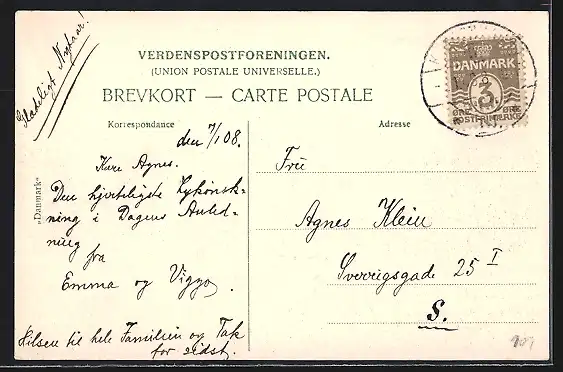 Glædeligt Nytaar!
VERDENSPOSTFORENINGEN.
(UNION POSTALE UNIVERSELLE.)
BREVKORT — CARTE POSTALE
Korrespondance
Adresse
den 7/1 08.
Kære Agnes.
Den hjerteligste Lykønsk-
ning i Dagens Anled-
ning
fra
Emma og Viggo.
Hilsen til hele Familien og Tak
for sidst.
„Danmark“
DANMARK
3
ØRE ØRE
POSTFRIMÆRKE
Fru
Agnes Klein
Sverrigsgade 25 I
S.